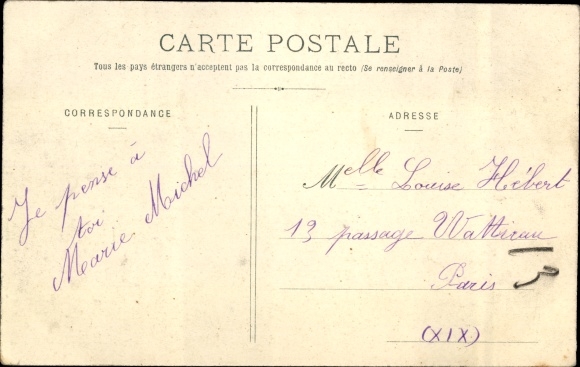 CARTE POSTALE
Tous les pays étrangers n'acceptent pas la correspondance au recto (Se renseigner à la Poste)
CORRESPONDANCE
Je pense à
toi
Marie Michel
ADRESSE
Melle Louise Hébert
13 passage Wattieau
Paris
(XIX)